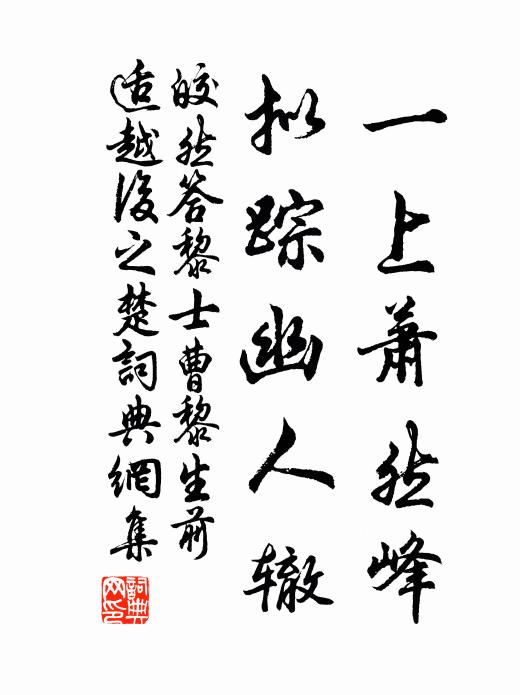 一上蕭然峰
拟踪幽人辙
皎然答黎士曹黎生前
适越後之楚詞典網集
詞典网印